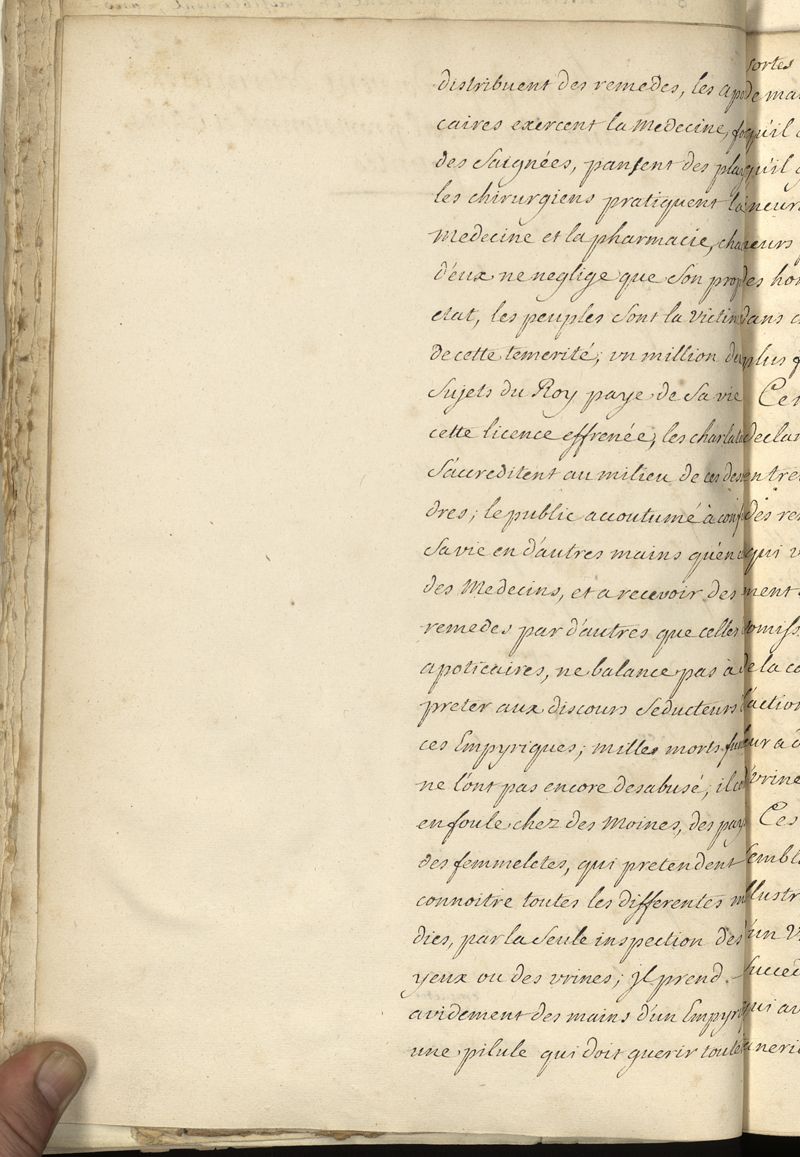 distribuent des remedes, les apo
caires exercent la Medecine, fo
des Saignées, pansent des pla
les chirurgiens pratiquent la
Medecine et la pharmacie, cha
d'eux ne neglige que Son prop
etat, les peuples Sont la Victim
de cette temerité, vn million de
Sujets du Roy paye de Sa vie
cette licence effrenée, les charlata
S'acreditent au milieu de ces deso
dres; le public accoutumé à conf
Sa vie en d'autres mains qu'en c
des Medecins, et a recevoir des
remedes par d'autres que celles
apoticaires, ne balance pas à
preter aux discours Seducteurs
ces Empyriques; milles morts fun
ne l'ont pas encore desabusé, il co
en foule chez des Moines, des pay
des femmeletes, qui pretendent
connoitre toutes les differentes m
dies, par la Seule inspection des
yeux ou des vrines; jl prend
avidement des mains d'un Empyr
une pilule qui doit guerir toute
sortes
de ma
qu'il
qu'il
neur
eurs
des ho
dans
plus f
Ces
declar
entre
des re
qui v
ment
omiss
de la co
l'action
ur a d
d'vrine
Ces
Sembl
illustr
d'un V
Succed
qui av
neri